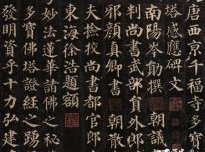 京千福寺多寶
塔感應碑文
南陽岑勛撰 朝議
判尚書武部員外郎
邪顏真卿書 朝散
夫撿挍尚書都官郎
東海徐浩題額
妙法蓮華諸佛之秘
多寶佛塔證經之踴
發明資乎十力弘建